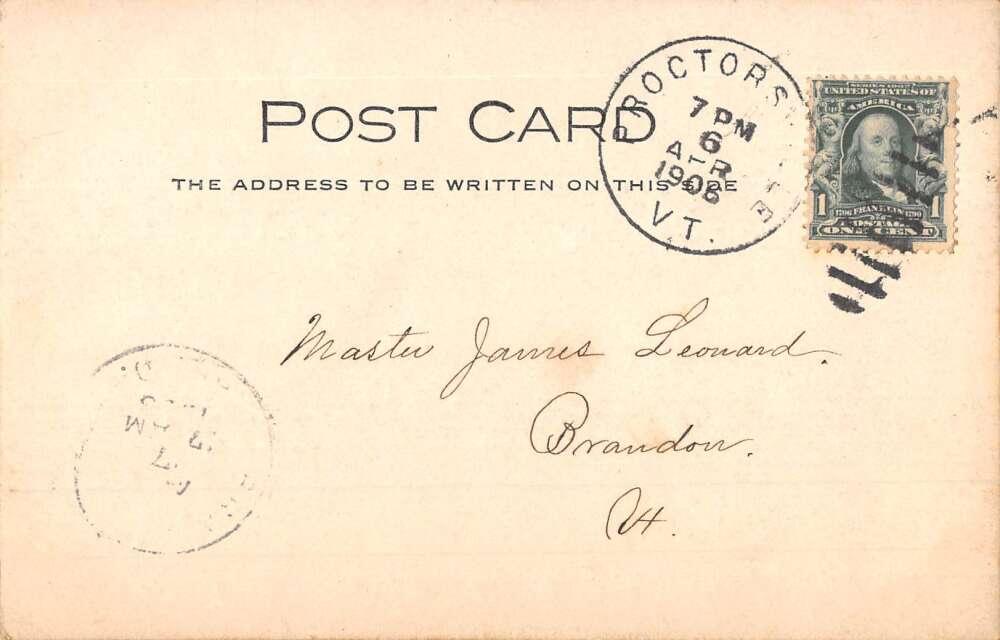 POST CARD
THE ADDRESS TO BE WRITTEN ON THIS SIDE
PROCTORS
7 PM
6
APR
1906
VT.
SERIES 1902
UNITED STATES OF
AMERICA
1 1706 FRANKLIN 1790 1
POSTAGE
ONE CENT
Master James Leonard.
Brandon.
Vt.
7 AM